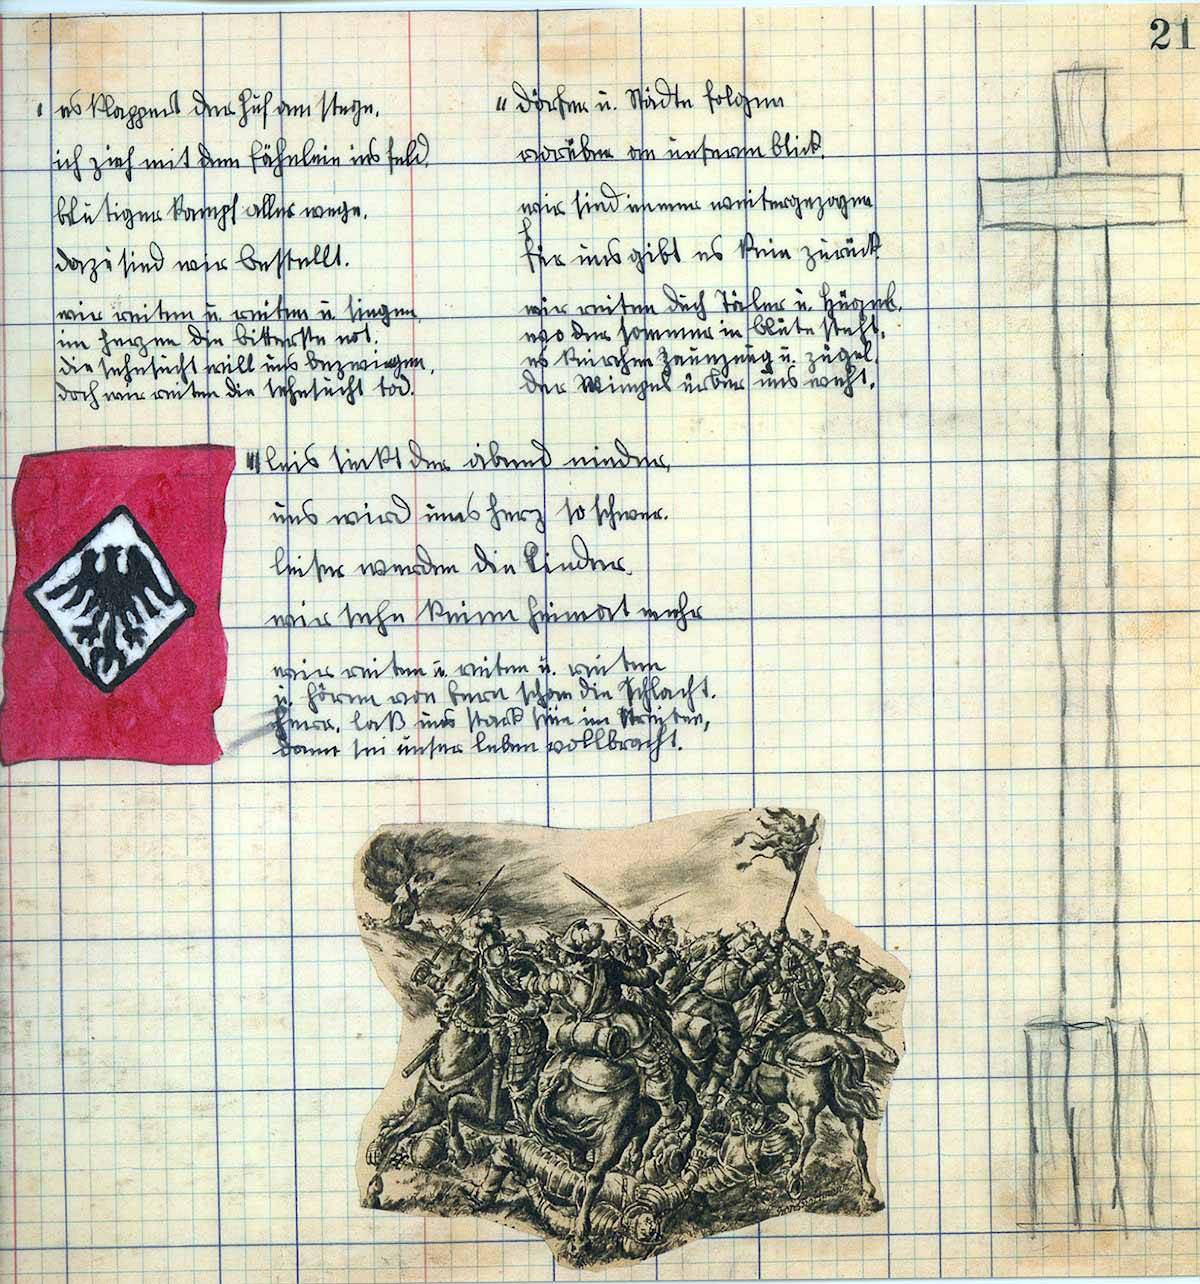 21
" es klappert der huf am stege,
ich zieh mit dem fähnlein ins feld,
blutiger kampf aller wege,
dazu sind wir bestellt.
wir reiten u. reiten u. singen,
im herzen die bitterste not.
die sehnsucht will uns bezwingen,
doch wir reiten die sehnsucht tod.
" dörfer u. Städte folgen
vorüber an unserem blick.
wir sind immer weitergezogen
für uns gibt es kein zurück
wir reiten duch Täler u. Hügel,
wo der sommer in blüte steht,
es knirschen zaumzeug u. zügel.
der Wimpel ürber uns weht.
" leis sinkt der abend nieder,
uns wird uns herz so schwer.
leiser werden die Lieder
wir sehn keine heimat mehr
wir reiten u. reiten u. reiten
u. hören von fern schon die Schlacht.
herr, laß uns stark sein im Streiten,
dann sei unser leben vollbracht.